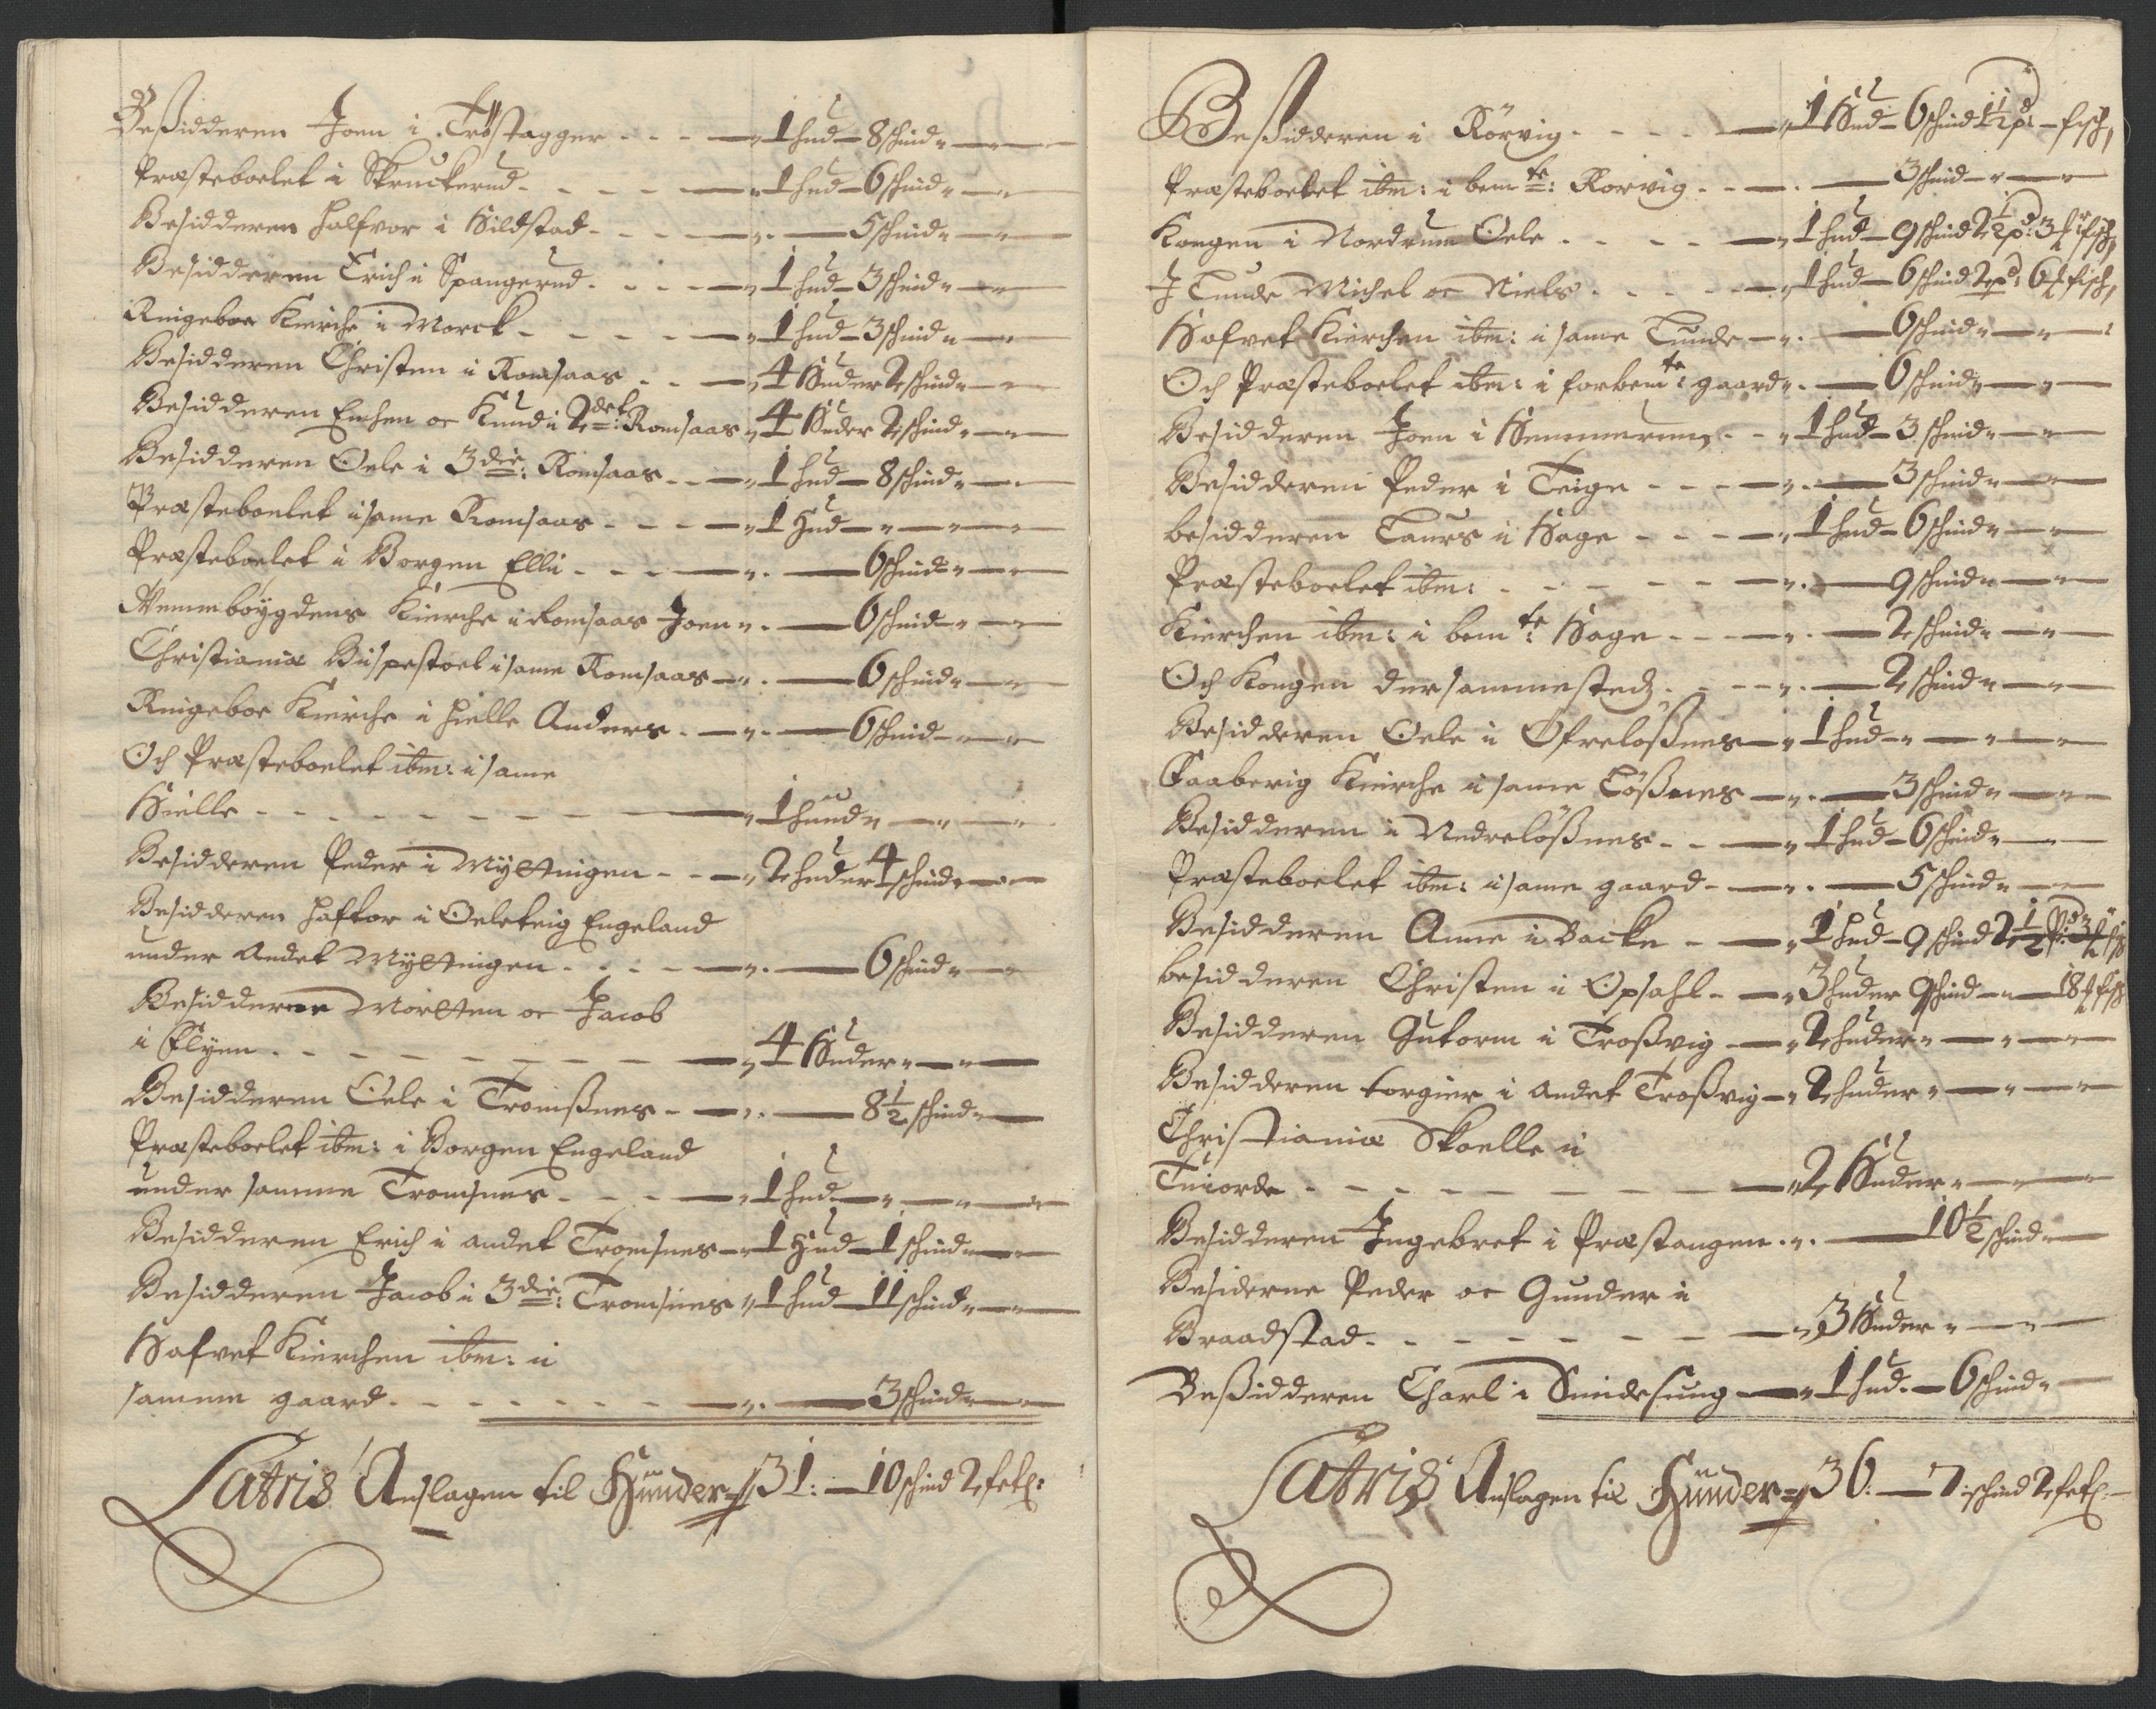 Beßidderen Joen i Tröstagger - - - 1 hud - 8 schind
Præsteboelet i Skruckerud - - - - 1 hud - 6 schind
Besidderen Halfvor i Kildstad - - - 5 schind
Besidderen Erich i Spangerud - - - 1 hud - 3 schind
Ringeboe Kierche i Morck - - - - 1 hud - 3 schind
Besidderen Christen i Romsaas - - - 4 Huder 2 schind
Besidderen Embret oc Knud i 2det: Romsaas 4 Huder 2 schind
Besidderen Oele i 3die: Romsaas - - 1 hud - 8 schind
Præsteboelet i same Romsaas - - - 1 Hud
Præsteboelet i Borgen Elli - - - 6 schind
Wemmböygdens Kierche i Romsaas Joen - 6 schind
Christianiæ Bispestoel i same Romsaas - 6 schind
Ringeboe Kierche i Hielle Anders - 6 schind
Och Præsteboelet ibm: i same
Hielle - - - - - - - - 1 hund
Besidderen Peder i Mÿttingen - - 2 huder 4 schind
Besidderen Haftor i Oeleteig Engeland
under Andet Mÿttingen - - - 6 schind
Besidderne Morten oc Jacob
i Flyen - - - - - - - 4 Huder
Besidderen Oele i Tromßnes - - 8½ schind
Præsteboelet ibm: i Borgen Engeland
under samme Tromsnes - - - 1 hud
Besidderen Erich i andet Tromsnes - 1 Hud - 1 schind
Besidderen Jacob i 3die: Tromsnes 1 hud - 11 schind
Hafvet Kierchen ibm: i
samme gaard - - - - - - 3 schind
Latris Anslagen til Hunder 31: - 10 schind 2 fetl:
Beßidderen i Rörvig - - - - 1 Hud - 6 schind 1½ pd: - fisch,
Præsteboelet ibm: i bemte: Rorvig - - 3 schind
Kongen i Nordrum Oele - - - - 1 hud - 9 schind 2½ pd: 3 fisch,
I Lunde Michel oc Niels - - - 1 hud - 6 schind 2 pd: 6 fisch,
Hafvet Kierchen ibm: i same Lunde - 6 schind
Och Præsteboelet ibm: i forbemte: gaard - 6 schind
Besidderen Joen i Hemmerum - - 1 hud - 3 schind
Besidderen Peder i Teige - - - 3 schind
besidderen Laurs i Hage - - - 1 hud - 6 schind
Præsteboelet ibm: - - - - - 9 schind
Kierchen ibm: i bemte: Hage - - - 2 schind
Och Kongen dersammested - - - 2 schind
Besidderen Oele i Öfrelößnes - 1 hud
Faaberig Kierche i same Lößnes - 3 schind
Besidderen i Nedrelößnes - - - 1 hud - 6 schind
Præsteboelet ibm: i same gaard - 5 schind
Besidderen Anne i Backe - - 1 hud - 9 schind 2½ pd: 3 fisch
besidderen Christen i Opsahl - 3 huder 9 schind - 18 fisch
Besidderen Gutorm i Troßvig - 2 huder
Besidderen torgier i andet Troßvig - 2 huder
Christianiæ Skoelle i
Tuiorde - - - - - - - 2 Huder
Besidderen Ingebret i Præstangen - 10½ schind
Besiderne Peder oc Gunder i
Braadstad - - - - - - 3 Huder
Beßidderen Charl i Smidesung - 1 hud - 6 schind
Latris Anslagen til Hunder 36. - 7 schind 2 fetl.